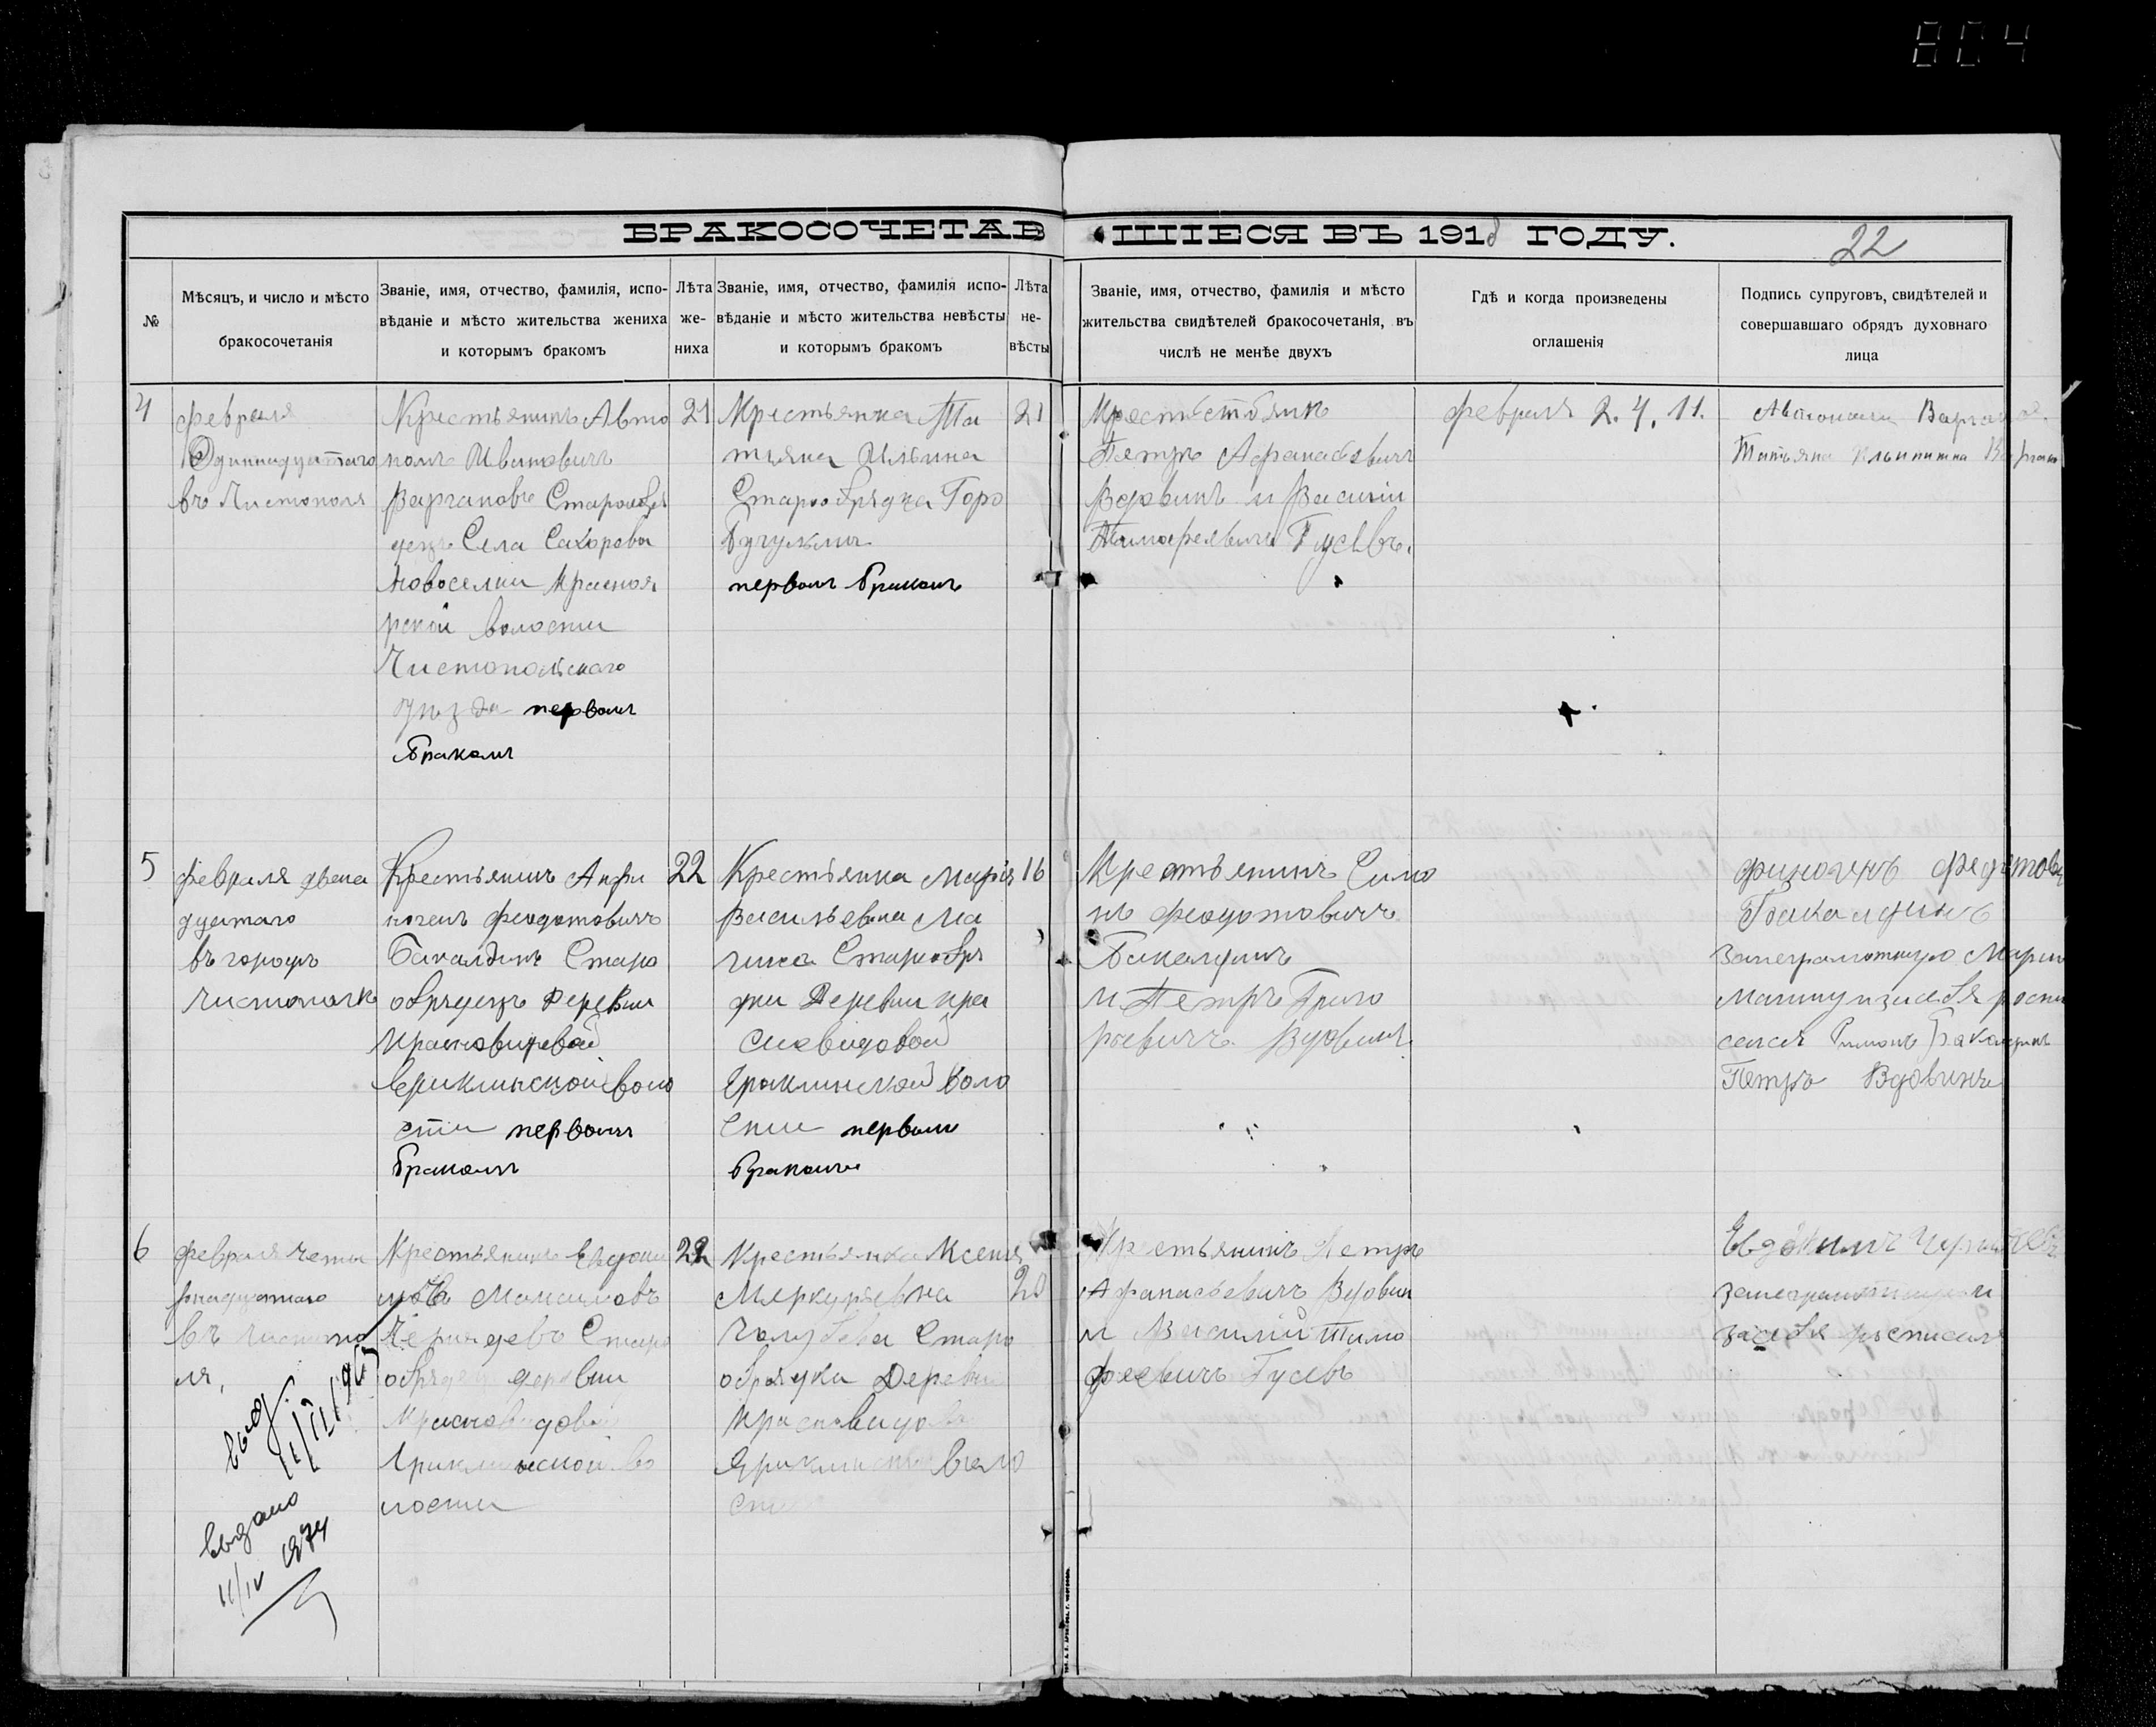 804
БРАКОСОЧЕТАВ ШІЕСЯ ВЪ 1918 ГОДУ.
22
№
Мѣсяцъ, и число и мѣсто
бракосочетанія
Званіе, имя, отчество, фамилія, испо-
вѣданіе и мѣсто жительства жениха
и которымъ бракомъ
Лѣта
же-
ниха
Званіе, имя, отчество, фамилія испо-
вѣданіе и мѣсто жительства невѣсты
и которымъ бракомъ
Лѣта
не-
вѣсты
Званіе, имя, отчество, фамилія и мѣсто
жительства свидѣтелей бракосочетанія, въ
числѣ не менѣе двухъ
Гдѣ и когда произведены
оглашенія
Подпись супруговъ, свидѣтелей и
совершавшаго обрядъ духовнаго
лица
4
февраля
Одиннадцатаго
въ Чистополя
Крестьянинъ Авто
номъ Ивановичъ
Варгановъ Старообря
децъ Села Сахарова
Новоселки Краснояр
рской волости
Чистопольскаго
уѣзда первымъ
бракомъ
21
Крестьянка Та
тьяна Ильина
Старообрядка Горо
первымъ бракомъ
21
Петръ Афанасьевичъ
Вдовинъ и Василій
Тимофеевичъ Гусевъ.
февраля 2. 4. 11.
Татьяна
5
февраля двена
дцатаго
въ городѣ
Чистополѣ
Крестьянинъ Анфи
ногенъ Феодотовичъ
Бакалдинъ Старо
обрядецъ Деревни
Красновидовой
Ериклинской воло
сти первымъ
бракомъ
22
Крестьянка Марія
Васильевна Ма
Старообря
дки Деревни Кра
сновидовой
Ериклинской воло
сти первымъ
бракомъ
16
Крестьянинъ Симо
нъ Феодотовичъ
Бакалдинъ
и Петръ Григо
рьевичъ Вдовинъ.
Бакалдинъ
занеграмотную Марию
Симонъ Бакалдинъ
Петръ Вдовинъ
6
февраля четы
рнадцатаго
въ Чистопо
ля,
Крестьянинъ Евдоки
мовъ Максимовъ
Старо
обрядец деревни
Красновидовой
Ериклинской во
лости
22
Крестьянка Ксенія
Меркурьевна
Голубева Старо
обрядка Деревни
Красновидово
Ериклинской воло
сти
20
Крестьянинъ Петръ
Афанасьевичъ Вдовин
и Василий Тимо
феевичъ Гусевъ
Евдокимъ
засебя росписался
выд.
выдано
11/IV 1974